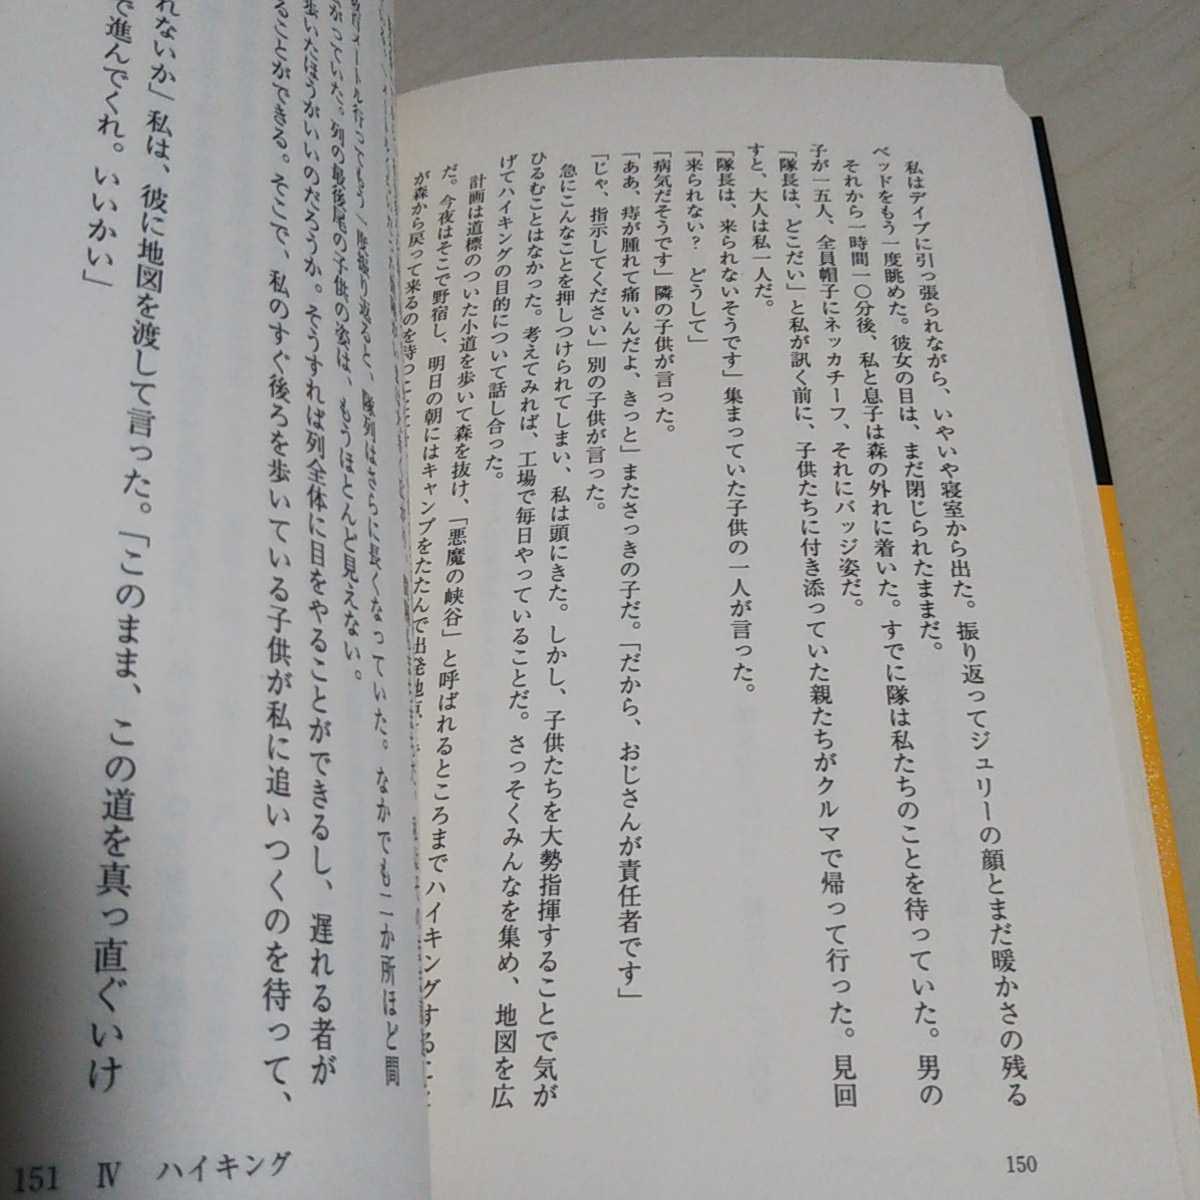 私はデイブに引っ張られながら、いやいや寝室から出た。振り返ってジュリーの顔とまだ暖かさの残る
ベッドをもう一度眺めた。彼女の目は、まだ閉じられたままだ。
それから一時間一〇分後、私と息子は森の外れに着いた。すでに隊は私たちのことを待っていた。男の
子が一五人、全員帽子にネッカチーフ、それにバッジ姿だ。
「隊長は、どこだい」と私が訊く前に、子供たちに付き添っていた親たちがクルマで帰って行った。見回
すと、大人は私一人だ。
「隊長は、来られないそうです」集まっていた子供の一人が言った。
「来られない？　どうして」
「病気だそうです」隣の子供が言った。
「ああ、痔が腫れて痛いんだよ、きっと」またさっきの子だ。「だから、おじさんが責任者です」
「じゃ、指示してください」別の子供が言った。
急にこんなことを押しつけられてしまい、私は頭にきた。しかし、子供たちを大勢指揮することで気が
ひるむことはなかった。考えてみれば、工場で毎日やっていることだ。さっそくみんなを集め、地図を広
げてハイキングの目的について話し合った。
計画は道標のついた小道を歩いて森を抜け、「悪魔の峡谷」と呼ばれるところまでハイキングすること
だ。今夜はそこで野宿し、明日の朝にはキャンプをたたんで出発地点
が森から戻って来るのを待つ
150
メートル行ってもう一度振り返ると、隊列はさらに長くなっていた。なかでも二か所ほど間
がっていた。列の最後尾の子供の姿は、もうほとんど見えない。
歩いたほうがいいのだろうか。そうすれば列全体に目をやることができるし、遅れる者が
ることができる。そこで、私のすぐ後ろを歩いている子供が私に追いつくのを待って、
れないか」私は、彼に地図を渡して言った。「このまま、この道を真っ直ぐいけ
で進んでくれ。いいかい」
151 Ⅳ ハイキング